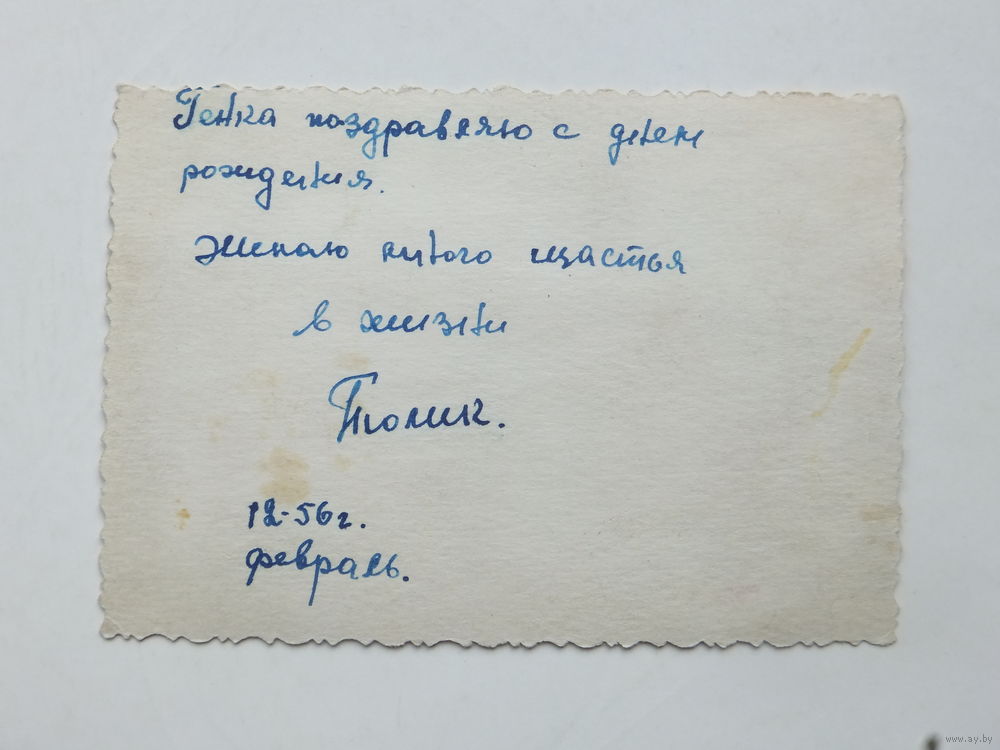 Генка поздравляю с днем
рождения.
Желаю много щастья
в жизни
Толик.
12-56г.
февраль.
www.ay.by